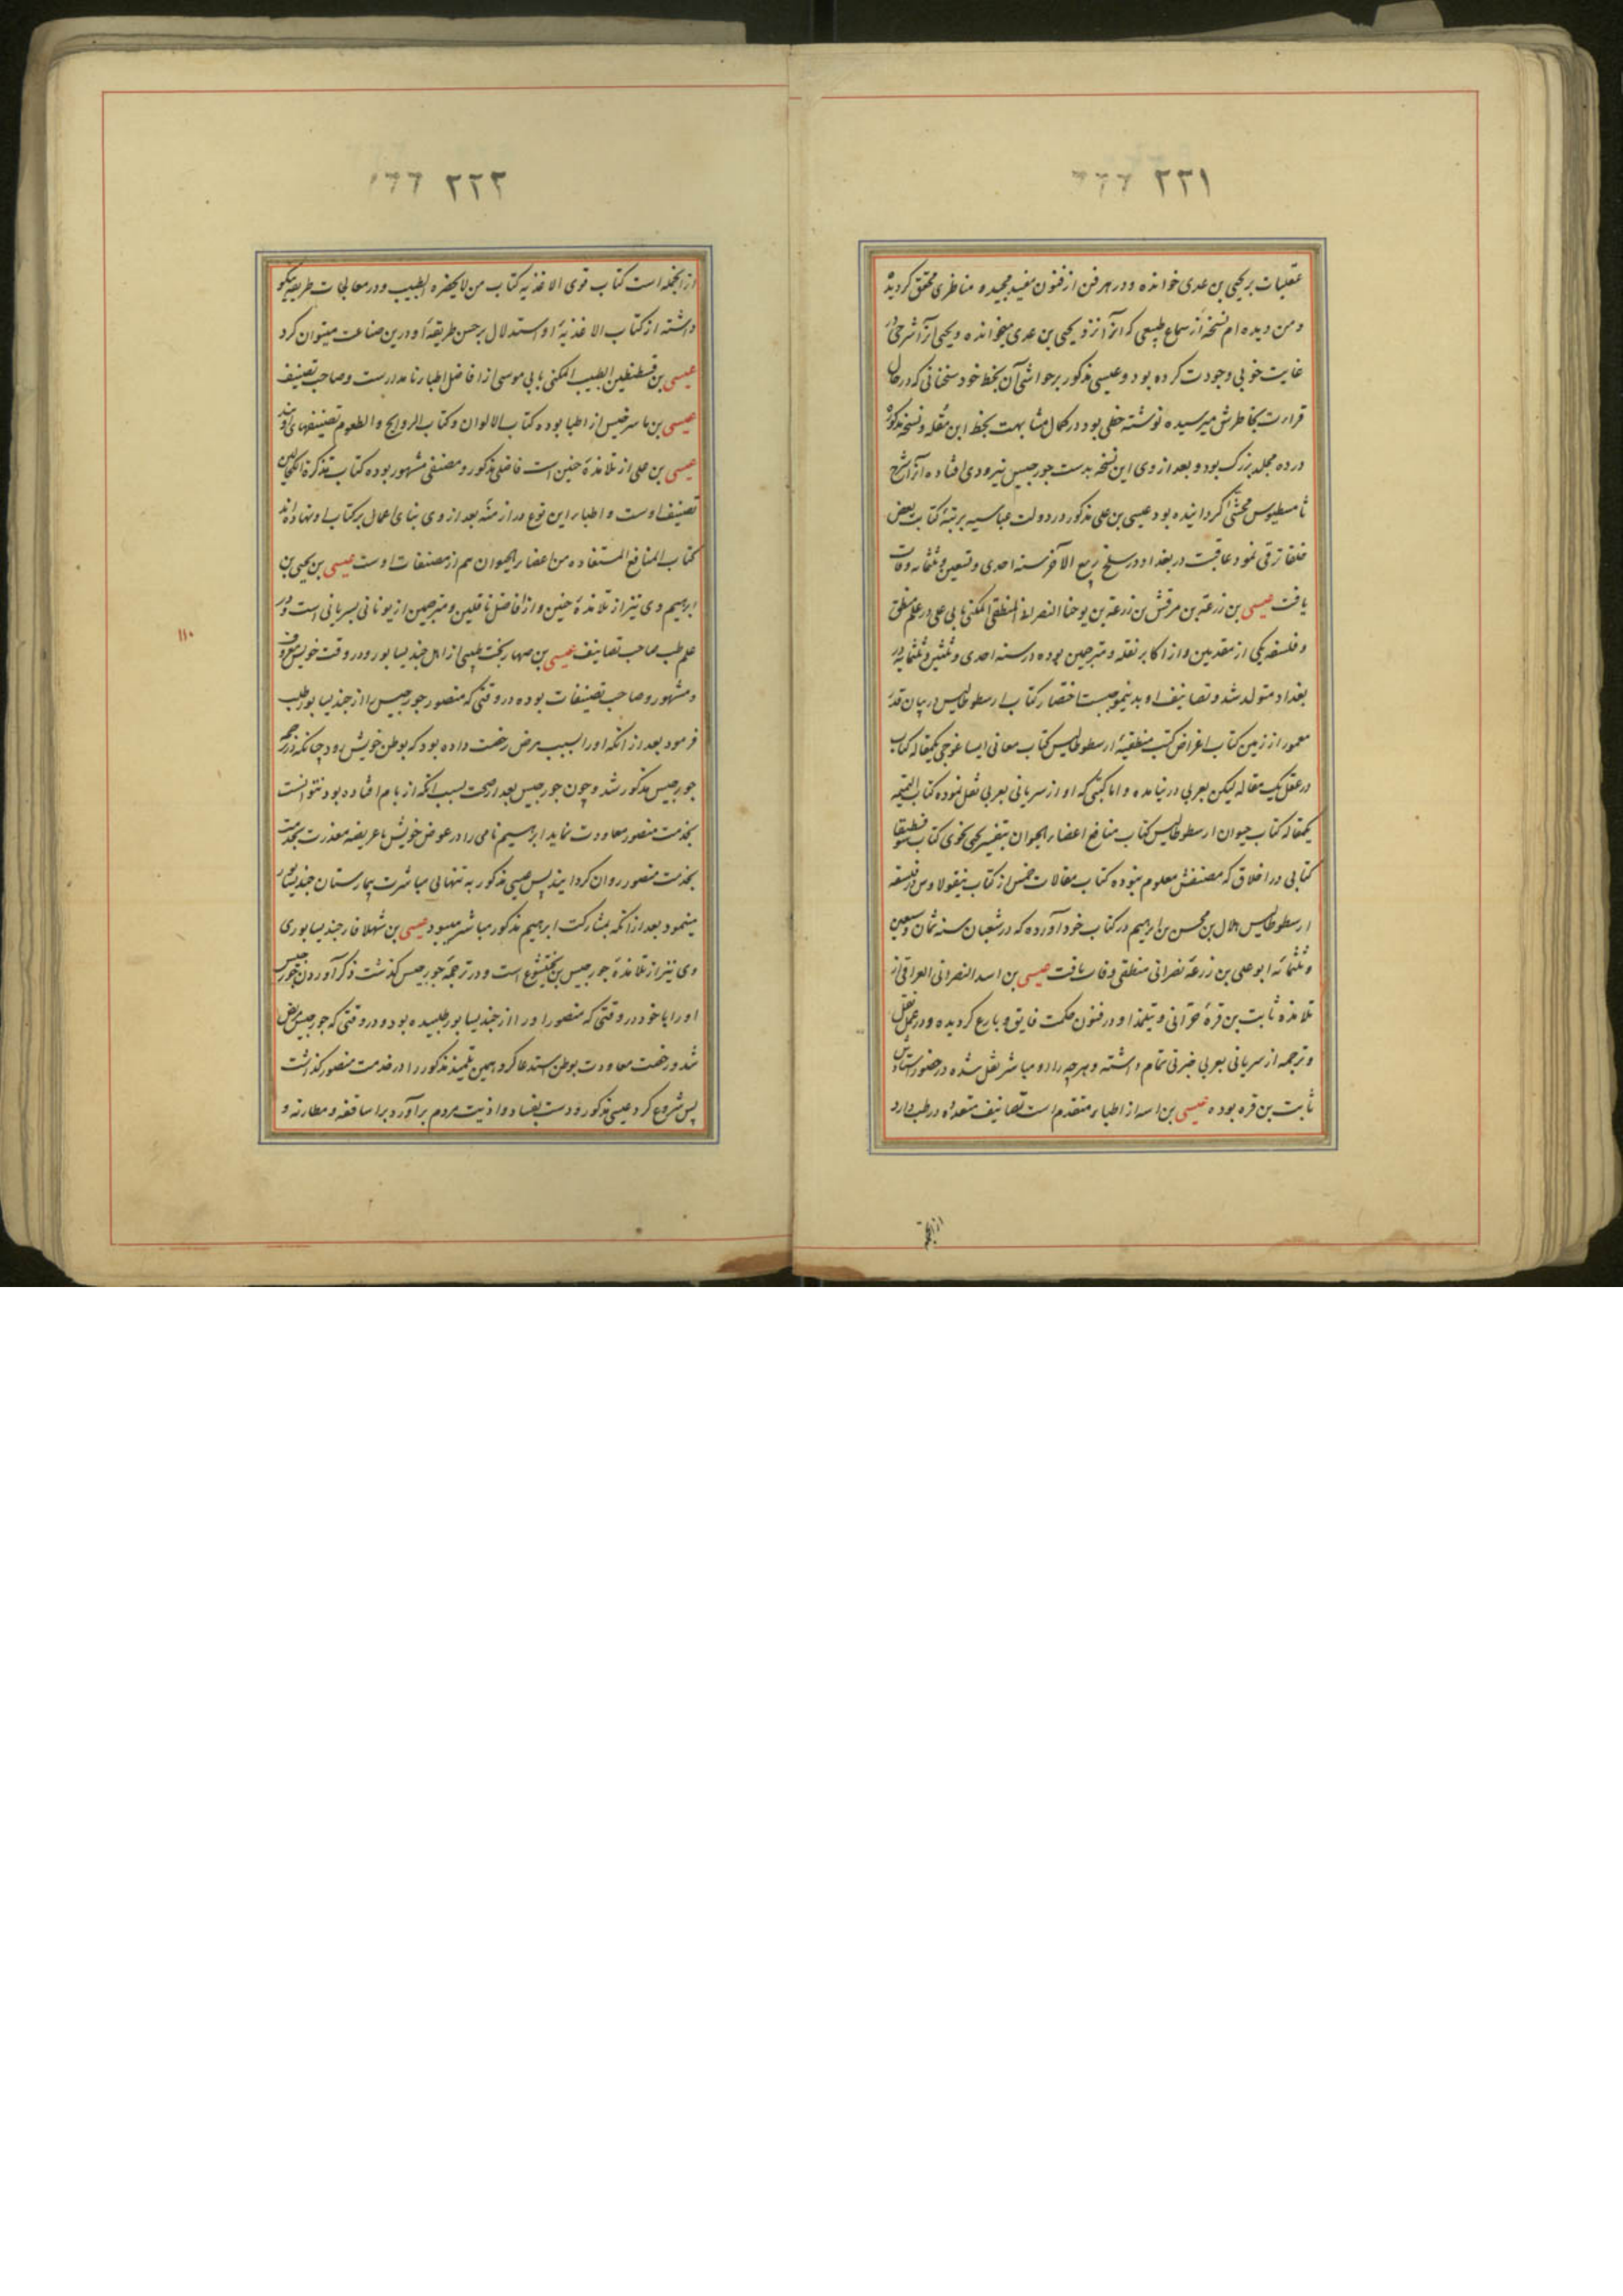 ٢٢١
عقلیات بر یحیی بن عدی خوانده و در هر فن از فنون مفید مجیده مناظری محقق کردیده
و من دیده ام نسخهٔ از سماع طبیعی که آنرا نزد یحیی بن عدی میخوانده و یحیی آنرا شرحی در
غایت خوبی وجودت کرده بود و عیسی مذکور بر حواشی آن بخط خود سخنانی که در حال
قراءت بخاطرش میرسیده نوشته خطی بود در کمال مشابهت بخط ابن مقله و نسخه مذکوره
در ده مجلد بزرک بود و بعد از وی این نسخه بدست جورجیس یبرودی افتاده آنرا بشرح
ثامسطیوس محشّی کردانیده بود عیسی بن علی مذکور در دولت عباسیه برتبهٔ کتابت بعض
خلفا ترقی نمود عاقبت در بغداد در سلخ ربیع الآخر سنه احدی و تسعین و ثلثمائه وفات
یافت عیسی بن زرعة بن مرقش بن زرعة بن یوحنا النصرانی المنطقی المکنی بابی علی در علم منطق
و فلسفه یکی از متقدمین و از اکابر نقله و مترجمین بوده در سنه احدی و ثلثین و ثلثمایه در
بغداد متولد شد و تصانیف او بدینموجبست اختصار کتاب ارسطوطالیس در بیان قدر
معمور از زمین کتاب اغراض کتب منطقیهٔ ارسطوطالیس کتاب معانی ایساغوجی یکمقاله کتاب
در عقل یک مقاله لیکن بعربی در نیامده و اما کتبی که او از سریانی بعربی نقل نموده کتاب النمیمه
یکمقاله کتاب حیوان ارسطوطالیس کتاب منافع اعضاء الحیوان بتفسیر یحیی نحوی کتاب سوفسطیقا
کتابی در اخلاق که مصنفش معلوم نبوده کتاب مقالات خمس از کتاب نیقولاوس در فلسفه
ارسطوطالیس هلال بن محسن بن ابرهیم در کتاب خود آورده که در شعبان سنه ثمان و سبعین
و ثلثمائه ابو علی بن زرعهٔ نصرانی منطقی وفات یافت عیسی بن اسد النصرانی العراقی از
تلامذه ثابت بن قرهٔ حرّانی و بتلمذ او در فنون حکمت فایق و بارع کردیده و در عمل نقل
و ترجمه از سریانی بعربی خبرتی تمام داشته و هرچه را او مباشر نقل شده در حضور استادش
ثابت بن قره بوده عیسی بن اسه از اطباء متقدم است تصانیف متعدده در طب دارد
ازانجمله
٢٢٢
ازانجمله است کتاب قوی الاغذیه کتاب من لا یحضره الطبیب و در معالجات طریقه نیکو
داشته از کتاب الاغذیهٔ او استدلال بر حسن طریقهٔ او درین صناعت میتوان کرد
عیسی بن قسطنطین الطبیب المکنی بابی موسی از افاضل اطباء نامدارست و صاحب تصنیف
عیسی بن ماسرخیس از اطبا بوده کتاب الالوان و کتاب الروایح و الطعوم تصنیفهای اوند
عیسی بن علی از تلامذهٔ حنین است فاضلی مذکور و مصنفی مشهور بوده کتاب تذکرة الکحالین
تصنیف اوست و اطباء این نوع در ازمنهٔ بعد از وی بنای اعمال بر کتاب او نهاده اند
کتاب المنافع المستفاده من اعضاء الحیوان هم از مصنفات اوست عیسی بن یحیی بن
ابرهیم وی نیز از تلامذهٔ حنین و از افاضل ناقلین و مترجمین از یونانی بسریانی است و در
علم طب صاحب تصانیف عیسی بن صهاربخت طبیبی از اهل جندیسابور و در وقت خویش معروف
و مشهور و صاحب تصنیفات بوده در وقتی که منصور جورجیس را از جندیسابور طلب
فرمود بعد از انکه او را بسبب مرض رخصت داده بود که بوطن خویش رود چنانکه در ترجمه
جورجیس مذکور شد و چون جورجیس بعد از صحت بسبب انکه از بام افتاده بود نتوانست
بخدمت منصور معاودت نماید ابرهیم نامی را در عوض خویش با عریضه معذرت بخدمت
بخدمت منصور روان کردانید پس عیسی مذکور به تنهایی مباشرت بیمارستان جندیشاپور
مینمود بعد از انکه بمشارکت ابرهیم مذکور مباشر میبود عیسی بن شهلافا جندیسابوری
وی نیز از تلامذهٔ جورجیس بن بختیشوع است و در ترجمهٔ جورجیس کذشت ذکر آوردن جورجیس
او را با خود در وقتی که منصور او را از جندیسابور طلبیده بود و در وقتی که جورجیس مریض
شد و رخصت معاودت بوطن استدعا کرد همین تلمیذ مذکور را در خدمت منصور کذاشت
پس شروع کرد عیسی مذکور و دست بفساد و اذیت مردم برآورد بر اساقفه و مطارنه و
١١٠